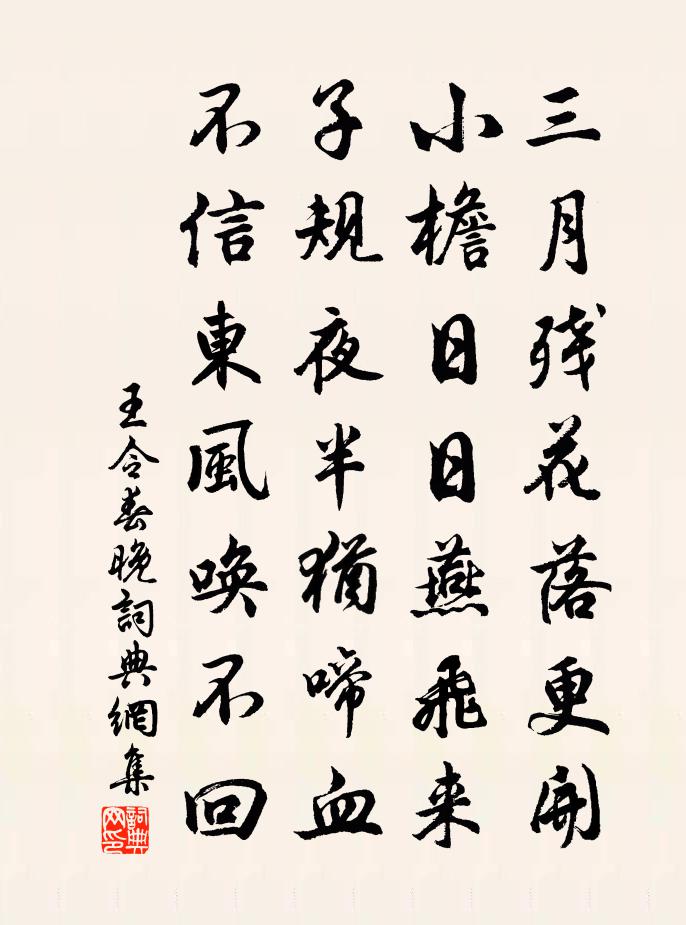 三月残花落更開
小檐日日燕飛来
子規夜半猶啼血
不信東風喚不回
王令春晚詞典網集
詞典網印